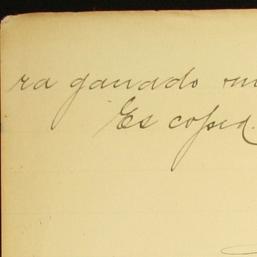 ra ganado
Es copia.